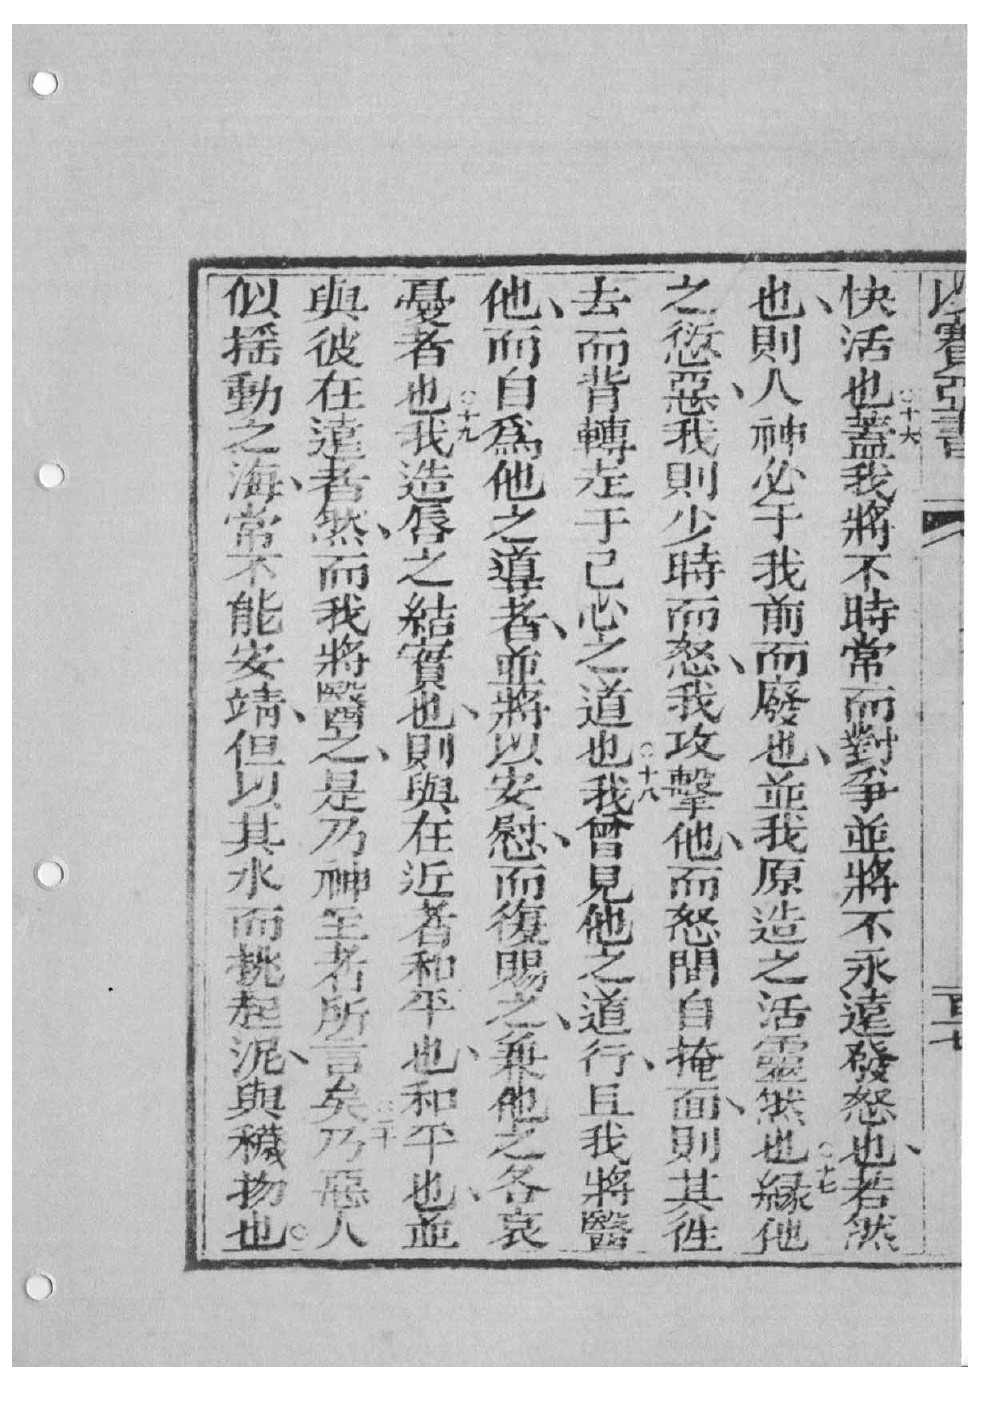 以賽亞書 百七
快活也○十六蓋我將不時常而對爭並將不永遠發怒也、若然
也、則人神必于我前而廢也、並我原造之活靈然也○十七緣他
之愆惡、我則少時而怒、我攻擊他、而怒間自掩面、則其徃
去而背轉走于己心之道也○十八我曾見他之道行、且我將醫
他、而自爲他之導者、並將以安慰、而復賜之、兼他之各哀
憂者也○十九我造唇之結實也、則與在近者和平也、和平也、並
與彼在遠者然、而我將醫之、是乃神主者所言矣○二十乃惡人
似搖動之海、常不能安靖、但以其水而挑起泥、與穢物也○